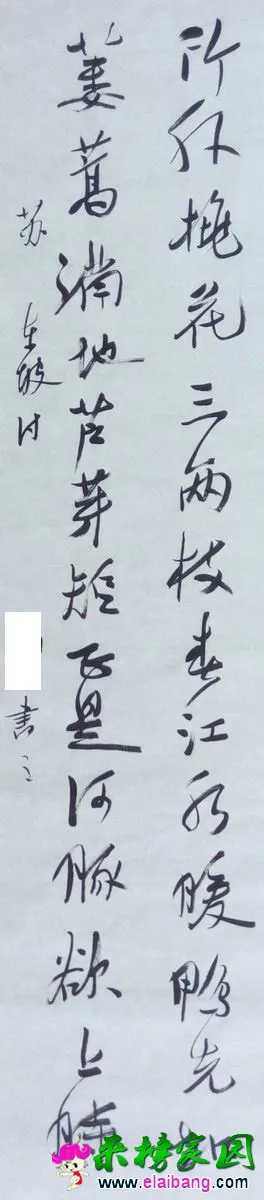 竹外桃花三两枝春江水暖鸭先知
蒌蒿满地芦芽短正是河豚欲上時
苏东坡诗
书之
来榜家园
www.elaibang.com